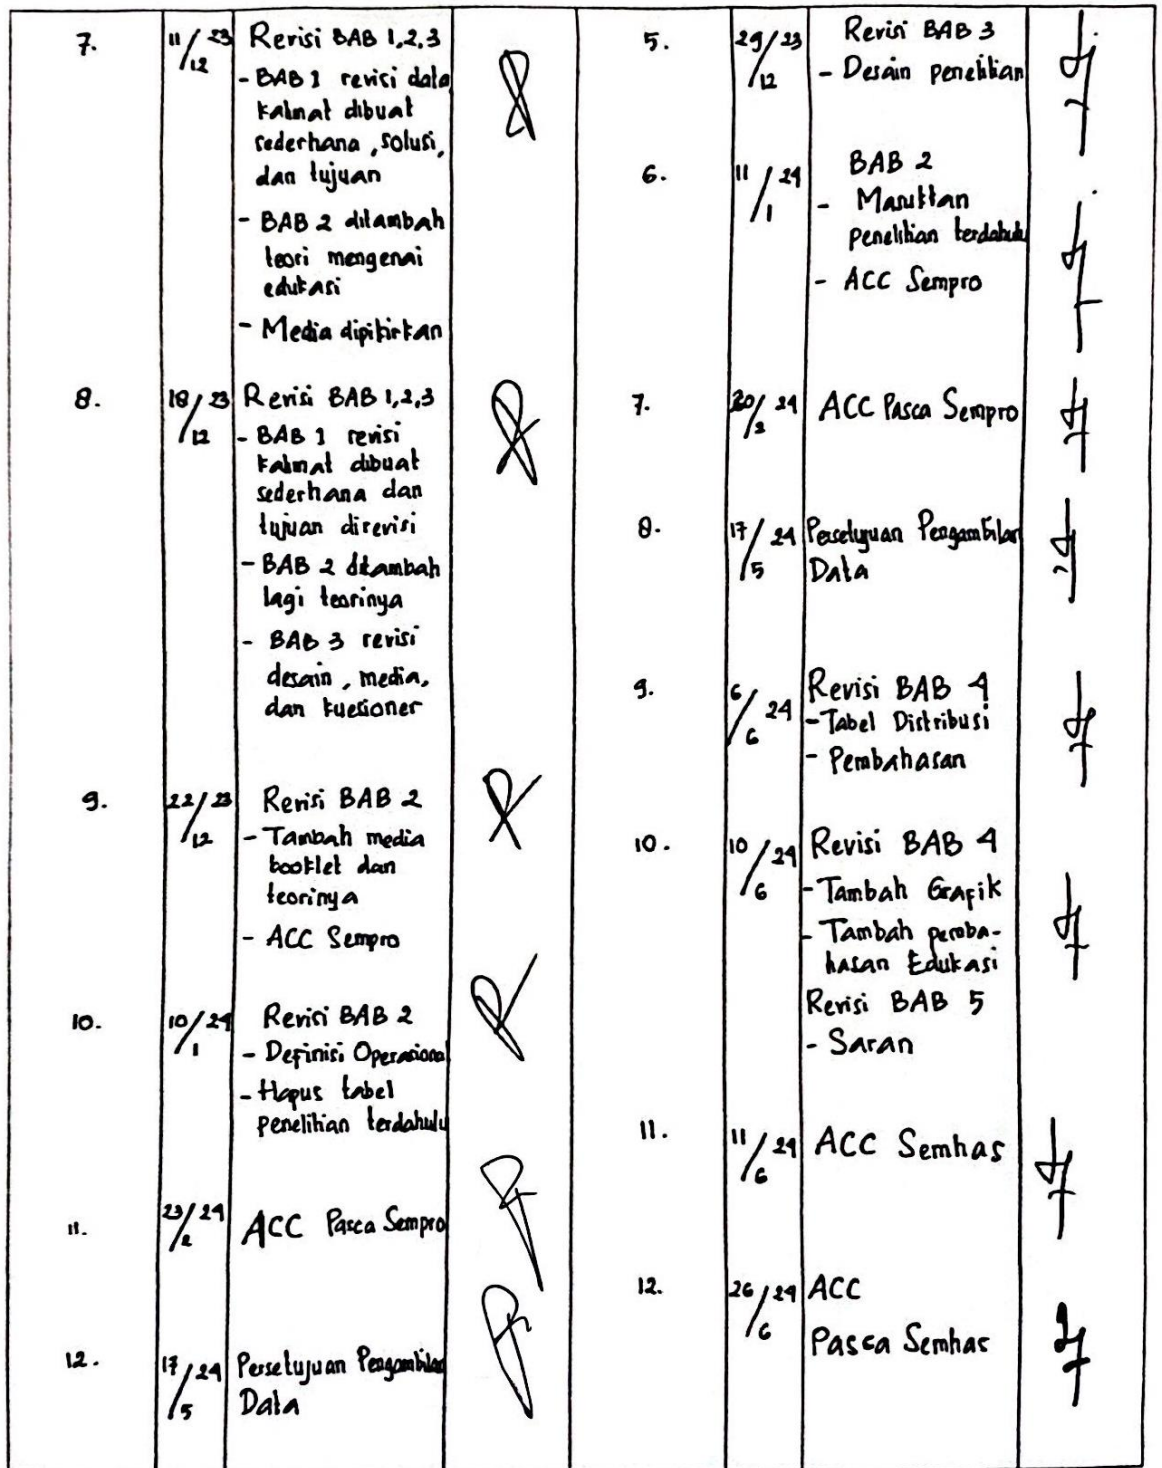 7.
11/12 23
Revisi BAB 1,2,3
- BAB 1 revisi data
kalimat dibuat
sederhana, solusi,
dan tujuan
- BAB 2 ditambah
teori mengenai
edukasi
- Media dipikirkan
8.
18/12 23
Revisi BAB 1,2,3
- BAB 1 revisi
kalimat dibuat
sederhana dan
tujuan direvisi
- BAB 2 ditambah
lagi teorinya
- BAB 3 revisi
desain, media,
dan kuesioner
9.
22/12 23
Revisi BAB 2
- Tambah media
booklet dan
teorinya
- ACC Sempro
10.
10/1 24
Revisi BAB 2
- Definisi Operasional
- Hapus tabel
penelitian terdahulu
11.
23/2 24
ACC Pasca Sempro
12.
17/5 24
Persetujuan Pengambilan
Data
5.
29/12 23
Revisi BAB 3
- Desain penelitian
6.
11/1 24
BAB 2
- Masukkan
penelitian terdahulu
- ACC Sempro
7.
20/2 24
ACC Pasca Sempro
8.
17/5 24
Persetujuan Pengambilan
Data
9.
6/6 24
Revisi BAB 4
- Tabel Distribusi
- Pembahasan
10.
10/6 24
Revisi BAB 4
- Tambah Grafik
- Tambah pemba-
hasan Edukasi
Revisi BAB 5
- Saran
11.
11/6 24
ACC Semhas
12.
26/6 24
ACC
Pasca Semhas